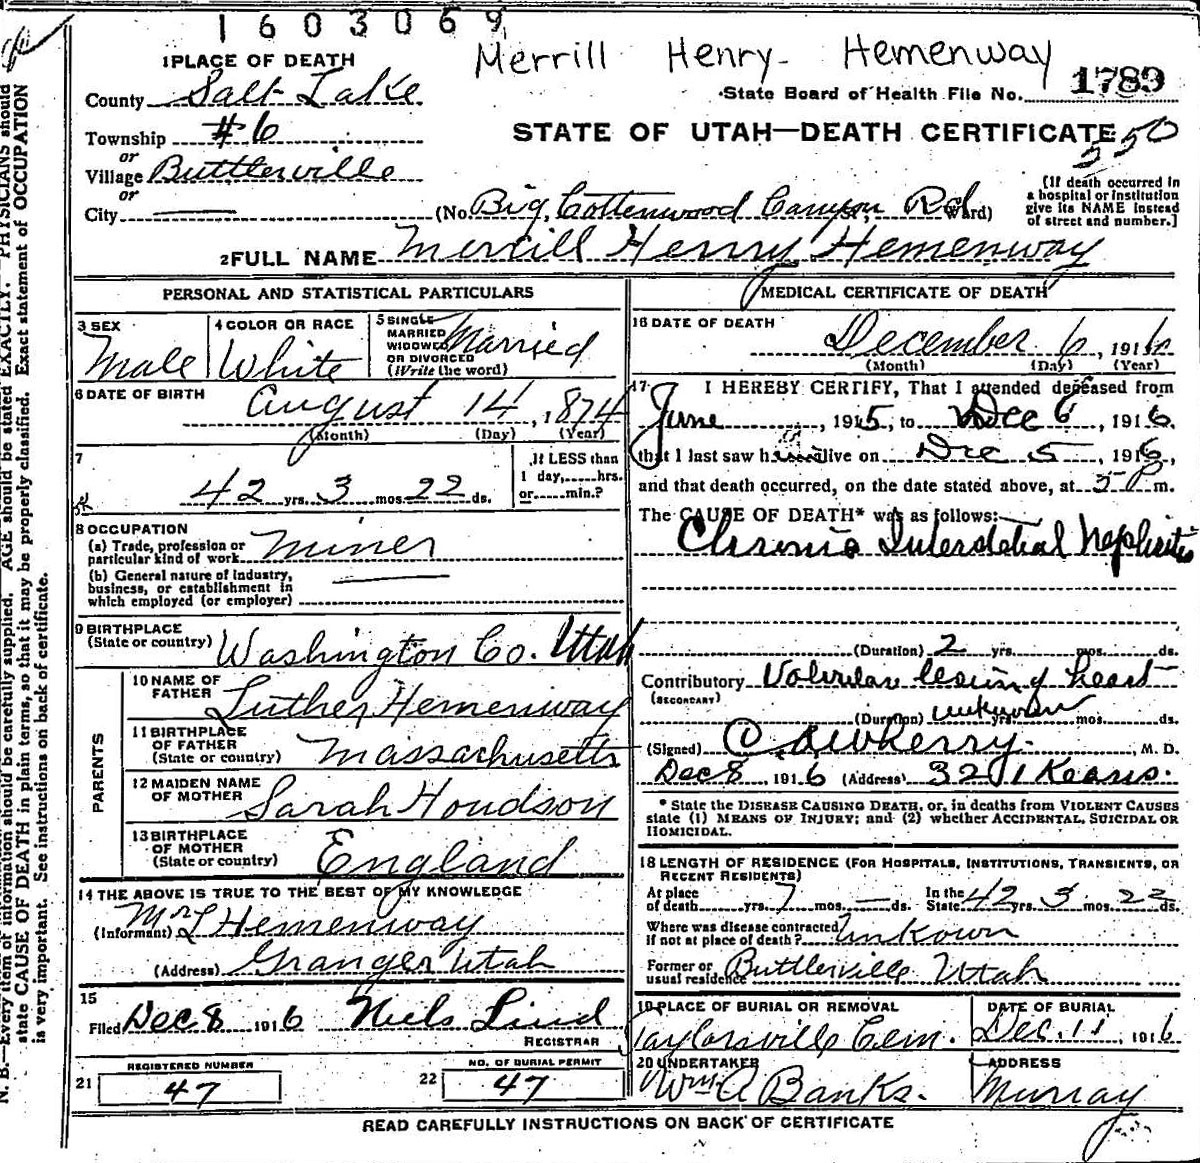 1603069
Merrill Henry Hemenway
1 PLACE OF DEATH
State Board of Health File No. 1789
County Salt Lake
STATE OF UTAH—DEATH CERTIFICATE
350
Township #6
or
Village Buttlerville
or
City
(No. Big Cottenwood Canyon Rd Ward)
[If death occurred in
a hospital or institution
give its NAME instead
of street and number.]
2 FULL NAME Merrill Henry Hemenway
PERSONAL AND STATISTICAL PARTICULARS
3 SEX Male
4 COLOR OR RACE White
5 SINGLE
MARRIED
WIDOWED
OR DIVORCED
(Write the word) Married
6 DATE OF BIRTH August 14, 1874
(Month) (Day) (Year)
7
42 yrs. 3 mos. 22 ds.
If LESS than
1 day,.....hrs.
or.....min.?
8 OCCUPATION
(a) Trade, profession or
particular kind of work Miner
(b) General nature of industry,
business, or establishment in
which employed (or employer)
9 BIRTHPLACE
(State or country) Washington Co. Utah
PARENTS
10 NAME OF
FATHER Luther Hemenway
11 BIRTHPLACE
OF FATHER
(State or country) Massachusetts
12 MAIDEN NAME
OF MOTHER Sarah Houdson
13 BIRTHPLACE
OF MOTHER
(State or country) England
14 THE ABOVE IS TRUE TO THE BEST OF MY KNOWLEDGE
(Informant) Mrs L Hemenway
(Address) Granger Utah
15
Filed Dec 8 1916 Niels Lind
REGISTRAR
21 REGISTERED NUMBER 47
22 NO. OF BURIAL PERMIT 47
MEDICAL CERTIFICATE OF DEATH
16 DATE OF DEATH
December 6, 1916
(Month) (Day) (Year)
17 I HEREBY CERTIFY, That I attended deceased from
June, 1915, to Dec 6, 1916.
that I last saw h alive on Dec 5, 1916,
and that death occurred, on the date stated above, at 5 P m.
The CAUSE OF DEATH* was as follows:
Chronic Interstetial Nephritis
(Duration) 2 yrs. mos. ds.
Contributory Valvular lesiung heart
(SECONDARY)
(Duration) unknown yrs. mos. ds.
(Signed) M. D.
Dec 8, 1916 (Address) 3201 Kearns.
* State the DISEASE CAUSING DEATH, or, in deaths from VIOLENT CAUSES
state (1) MEANS OF INJURY; and (2) whether ACCIDENTAL, SUICIDAL OR
HOMICIDAL.
18 LENGTH OF RESIDENCE (FOR HOSPITALS, INSTITUTIONS, TRANSIENTS, OR
RECENT RESIDENTS)
At place
of death yrs. 7 mos. — ds. In the
State 42 yrs. 3 mos. 22 ds.
Where was disease contracted
if not at place of death? Unkown
Former or
usual residence Buttlerville Utah
19 PLACE OF BURIAL OR REMOVAL
Taylorsville Cem.
DATE OF BURIAL
Dec. 11 1916
20 UNDERTAKER
Wm A Banks.
ADDRESS
Murray
READ CAREFULLY INSTRUCTIONS ON BACK OF CERTIFICATE
N. B.—Every item of information should be carefully supplied. AGE should be stated EXACTLY. PHYSICIANS should
state CAUSE OF DEATH in plain terms, so that it may be properly classified. Exact statement of OCCUPATION
is very important. See instructions on back of certificate.